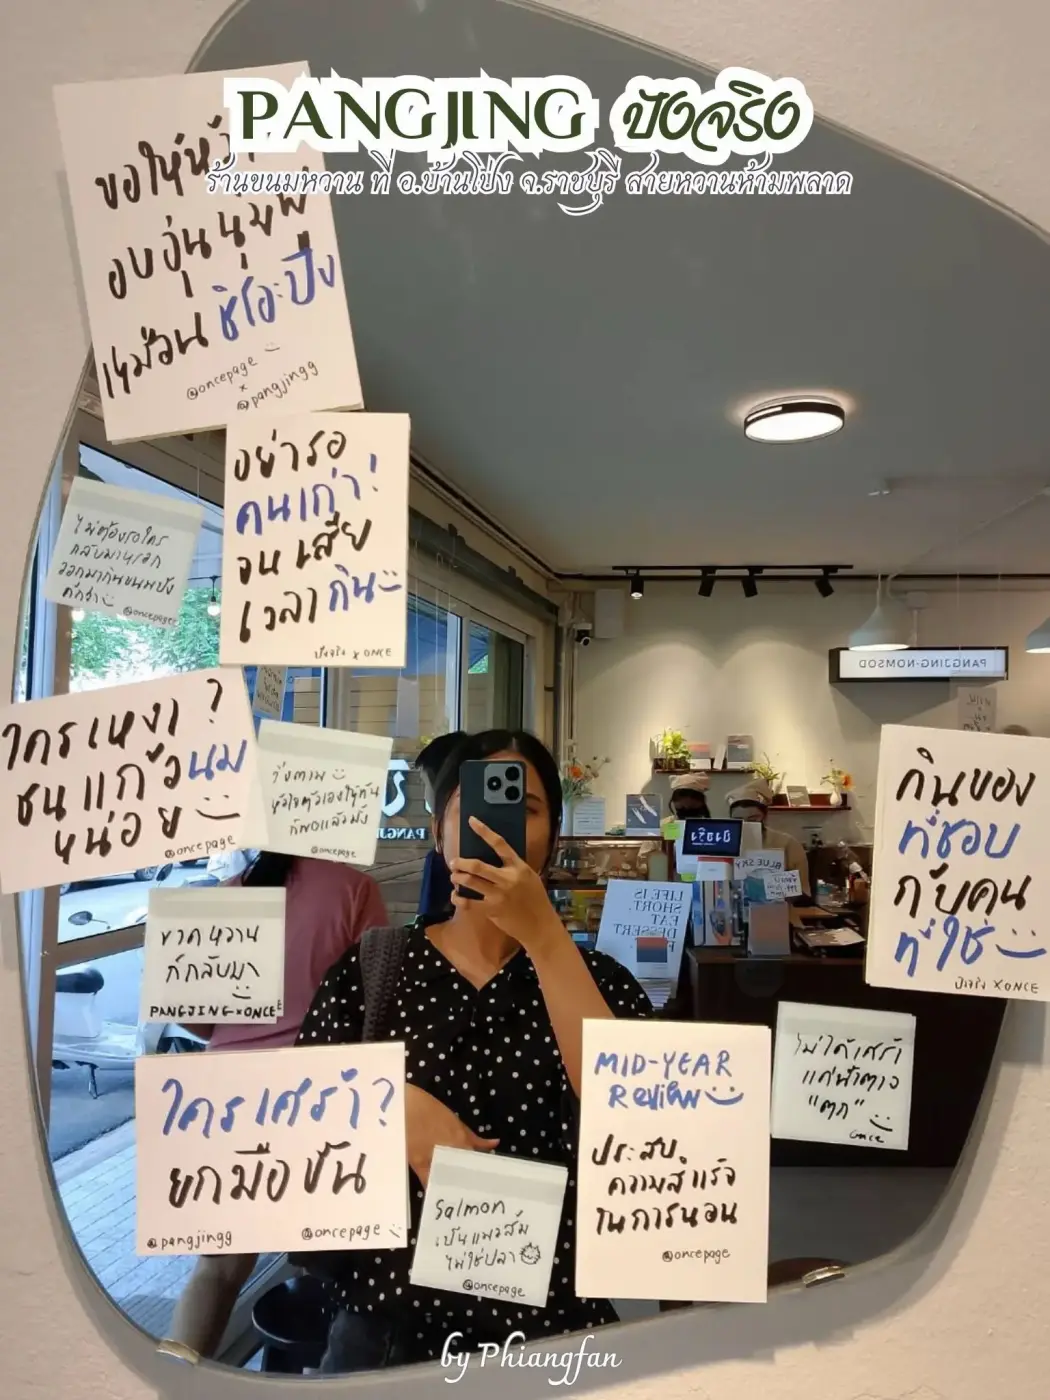 PANGJING ปังจริง
ร้านขนมหวาน ที่ อ.บ้านโป่ง จ.ราชบุรี สายหวานห้ามพลาด
ขอให้
อบอุ่นนุ่มฟู
เหมือนชิโอะปัง
@oncepage
×
@pangjingg
อย่ารอ
คนเก่า!
จนเสีย
เวลากิน
ปังจริง X ONCE
ไม่ต้องรอใคร
กลับมาหรอก
ออกมากินขนมปัง
ดีกว่า
@oncepage
ใครเหงา?
ชนแก้วนม
หน่อย
@oncepage
วิ่งตาม
หัวใจตัวเองให้ทัน
ก็พอแล้วมั้ง
@oncepage
ขาดหวาน
ก็กลับมา
PANGJING×ONCE
ใครเศร้า?
ยกมือขึ้น
@pangjingg
@oncepage
Salmon
เป็นแมวส้ม
ไม่ใช่ปลา
@oncepage
MID-YEAR
ReVieW
ประสบ
ความสำเร็จ
ในการนอน
@oncepage
ไม่ได้เศร้า
แค่น้ำตาจะ
"ตก"
Once
กินของ
ที่ชอบ
กับคน
ที่ใช่
ปังจริง XONCE
PANGJING-NOMSOD
ปังจริง
BLUE SKY
LIFE IS
SHORT.
EAT
DESSERT
by Phiangfan